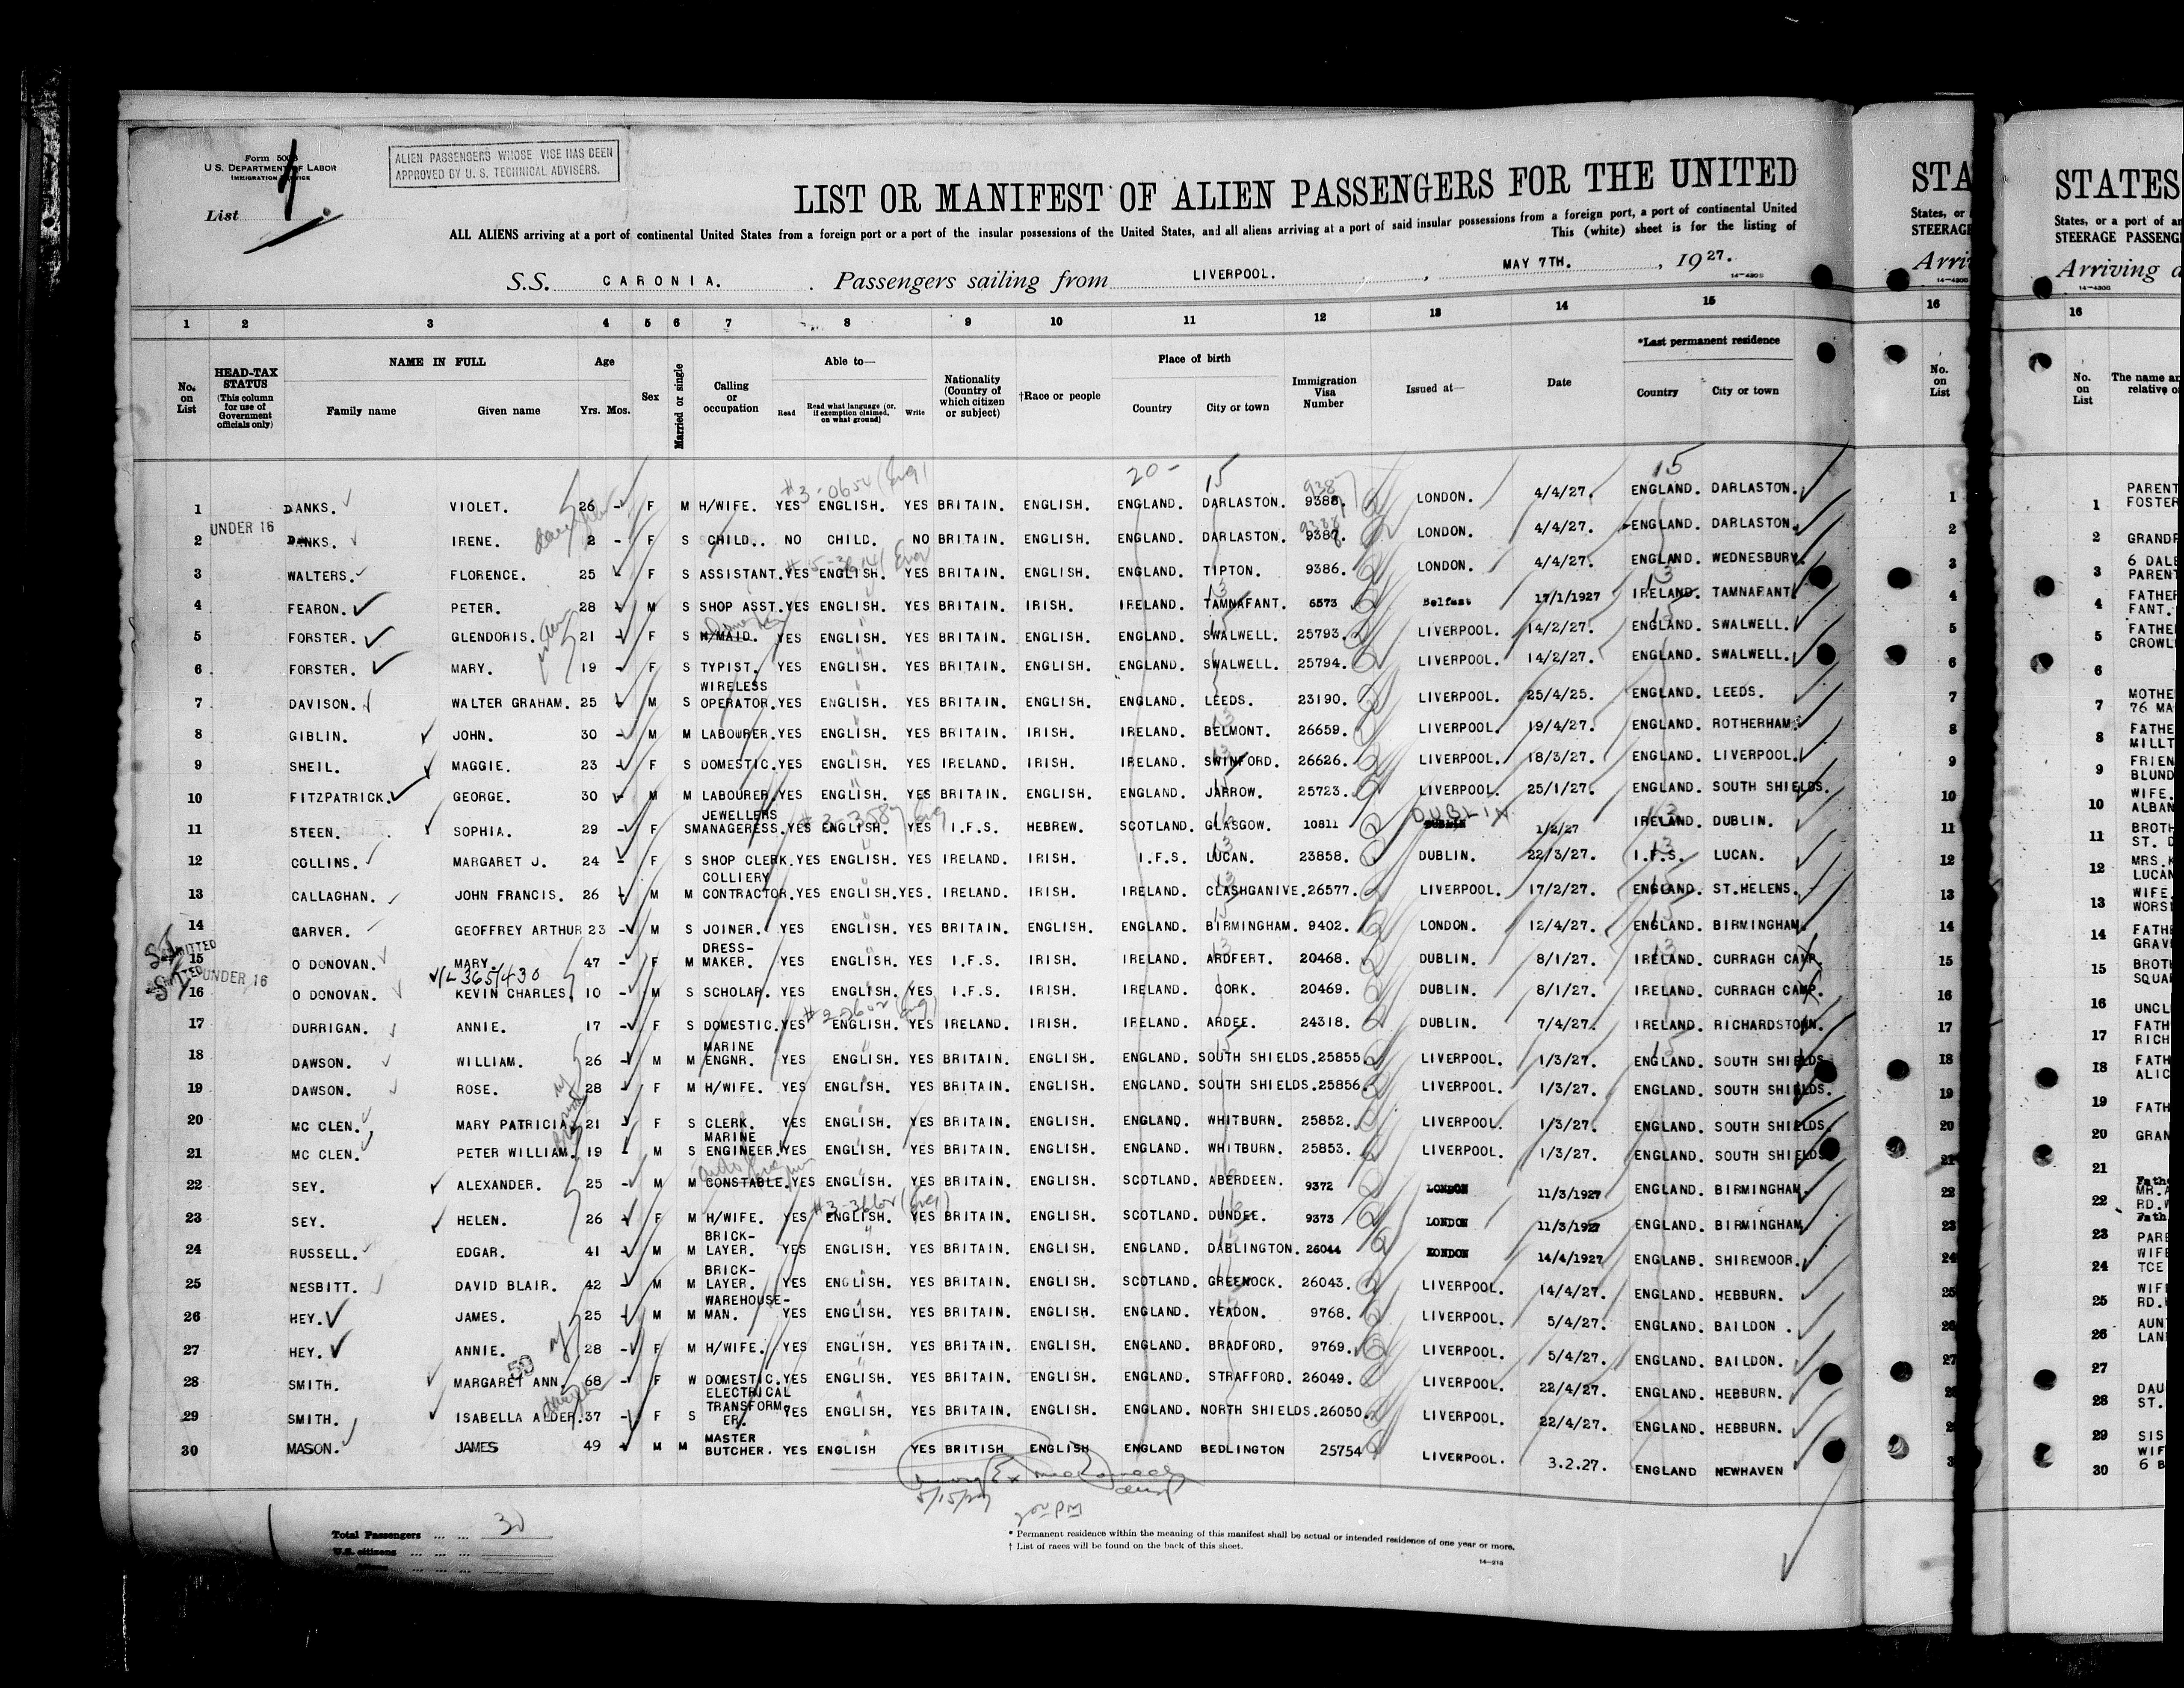 Form 500B
U. S. DEPARTMENT OF LABOR
IMMIGRATION SERVICE
ALIEN PASSENGERS WHOSE VISE HAS BEEN
APPROVED BY U. S. TECHNICAL ADVISERS.
List 1.
LIST OR MANIFEST OF ALIEN PASSENGERS FOR THE UNITED
ALL ALIENS arriving at a port of continental United States from a foreign port or a port of the insular possessions of the United States, and all aliens arriving at a port of said insular possessions from a foreign port, a port of continental United
This (white) sheet is for the listing of
S.S. CARONIA. Passengers sailing from LIVERPOOL. , MAY 7TH. , 1927.
1 2 3 4 5 6 7 8 9 10 11 12 13 14 15
No. on List
HEAD-TAX STATUS (This column for use of Government officials only)
NAME IN FULL
Family name Given name
Age
Yrs. Mos.
Sex
Married or single
Calling or occupation
Able to—
Read Read what language (or, if exemption claimed, on what ground) Write
Nationality (Country of which citizen or subject)
†Race or people
Place of birth
Country City or town
Immigration Visa Number
Issued at—
Date
*Last permanent residence
Country City or town
20- 15 15
#3-0654 (Eng)
1 DANKS. VIOLET. 26 - F M H/WIFE. YES ENGLISH. YES BRITAIN. ENGLISH. ENGLAND. DARLASTON. 9388. 9387 LONDON. 4/4/27. ENGLAND. DARLASTON.
UNDER 16
2 DANKS. IRENE. 2 - F S CHILD.. NO CHILD. NO BRITAIN. ENGLISH. ENGLAND. DARLASTON. 9387. 9388 LONDON. 4/4/27. ENGLAND. DARLASTON.
3 WALTERS. FLORENCE. 25 - F S ASSISTANT. YES ENGLISH. YES BRITAIN. ENGLISH. ENGLAND. TIPTON. 9386. LONDON. 4/4/27. ENGLAND. WEDNESBURY.
4 FEARON. PETER. 28 - M S SHOP ASST. YES ENGLISH. YES BRITAIN. IRISH. IRELAND. TAMNAFANT. 6573 Belfast 17/1/1927 IRELAND. TAMNAFANT.
5 FORSTER. GLENDORIS. 21 - F S H/MAID. YES ENGLISH. YES BRITAIN. ENGLISH. ENGLAND. SWALWELL. 25793. LIVERPOOL. 14/2/27. ENGLAND. SWALWELL.
6 FORSTER. MARY. 19 - F S TYPIST. YES ENGLISH. YES BRITAIN. ENGLISH. ENGLAND. SWALWELL. 25794. LIVERPOOL. 14/2/27. ENGLAND. SWALWELL.
7 DAVISON. WALTER GRAHAM. 25 M S WIRELESS OPERATOR. YES ENGLISH. YES BRITAIN. ENGLISH. ENGLAND. LEEDS. 23190. LIVERPOOL. 25/4/25. ENGLAND. LEEDS.
8 GIBLIN. JOHN. 30 - M M LABOURER. YES ENGLISH. YES BRITAIN. IRISH. IRELAND. BELMONT. 26659. LIVERPOOL. 19/4/27. ENGLAND. ROTHERHAM.
9 SHEIL. MAGGIE. 23 - F S DOMESTIC. YES ENGLISH. YES IRELAND. IRISH. IRELAND. SWINFORD. 26626. LIVERPOOL. 18/3/27. ENGLAND. LIVERPOOL.
10 FITZPATRICK. GEORGE. 30 - M M LABOURER. YES ENGLISH. YES BRITAIN. ENGLISH. ENGLAND. JARROW. 25723. LIVERPOOL. 25/1/27. ENGLAND. SOUTH SHIELDS.
11 STEEN. SOPHIA. 29 - F S JEWELLERS MANAGERESS. YES ENGLISH. YES I.F.S. HEBREW. SCOTLAND. GLASGOW. 10811 DUBLIN 1/2/27 IRELAND. DUBLIN.
12 COLLINS. MARGARET J. 24 - F S SHOP CLERK. YES ENGLISH. YES IRELAND. IRISH. I.F.S. LUCAN. 23858. DUBLIN. 22/3/27. I.F.S. LUCAN.
13 CALLAGHAN. JOHN FRANCIS. 26 M M COLLIERY CONTRACTOR. YES ENGLISH. YES. IRELAND. IRISH. IRELAND. CLASHGANIVE. 26577. LIVERPOOL. 17/2/27. ENGLAND. ST.HELENS.
14 GARVER. GEOFFREY ARTHUR 23 - M S JOINER. YES ENGLISH. YES BRITAIN. ENGLISH. ENGLAND. BIRMINGHAM. 9402. LONDON. 12/4/27. ENGLAND. BIRMINGHAM.
15 O DONOVAN. MARY. 47 - F M DRESS-MAKER. YES ENGLISH. YES I.F.S. IRISH. IRELAND. ARDFERT. 20468. DUBLIN. 8/1/27. IRELAND. CURRAGH CAMP.
V/L 365/430
UNDER 16
16 O DONOVAN. KEVIN CHARLES. 10 - M S SCHOLAR. YES ENGLISH. YES I.F.S. IRISH. IRELAND. CORK. 20469. DUBLIN. 8/1/27. IRELAND. CURRAGH CAMP.
17 DURRIGAN. ANNIE. 17 - F S DOMESTIC. YES ENGLISH. YES IRELAND. IRISH. IRELAND. ARDEE. 24318. DUBLIN. 7/4/27. IRELAND. RICHARDSTOWN.
18 DAWSON. WILLIAM. 26 - M M MARINE ENGNR. YES ENGLISH. YES BRITAIN. ENGLISH. ENGLAND. SOUTH SHIELDS. 25855. LIVERPOOL. 1/3/27. ENGLAND. SOUTH SHIELDS.
19 DAWSON. ROSE. 28 - F M H/WIFE. YES ENGLISH. YES BRITAIN. ENGLISH. ENGLAND. SOUTH SHIELDS. 25856. LIVERPOOL. 1/3/27. ENGLAND. SOUTH SHIELDS.
20 MC CLEN. MARY PATRICIA. 21 F S CLERK. YES ENGLISH. YES BRITAIN. ENGLISH. ENGLAND. WHITBURN. 25852. LIVERPOOL. 1/3/27. ENGLAND. SOUTH SHIELDS.
21 MC CLEN. PETER WILLIAM. 19 M S MARINE ENGINEER. YES ENGLISH. YES BRITAIN. ENGLISH. ENGLAND. WHITBURN. 25853. LIVERPOOL. 1/3/27. ENGLAND. SOUTH SHIELDS
22 SEY. ALEXANDER. 25 - M M CONSTABLE. YES ENGLISH. YES BRITAIN. ENGLISH. SCOTLAND. ABERDEEN. 9372 LONDON 11/3/1927 ENGLAND. BIRMINGHAM.
23 SEY. HELEN. 26 F M H/WIFE. YES ENGLISH. YES BRITAIN. ENGLISH. SCOTLAND. DUNDEE. 9373 LONDON 11/3/1927 ENGLAND. BIRMINGHAM.
24 RUSSELL. EDGAR. 41 - M M BRICK-LAYER. YES ENGLISH. YES BRITAIN. ENGLISH. ENGLAND. DABLINGTON. 26044 LONDON 14/4/1927 ENGLAND. SHIREMOOR.
25 NESBITT. DAVID BLAIR. 42 M M BRICK-LAYER. YES ENGLISH. YES BRITAIN. ENGLISH. SCOTLAND. GREENOCK. 26043. LIVERPOOL. 14/4/27. ENGLAND. HEBBURN.
26 HEY. JAMES. 25 - M M WAREHOUSE-MAN. YES ENGLISH. YES BRITAIN. ENGLISH. ENGLAND. YEADON. 9768. LIVERPOOL. 5/4/27. ENGLAND. BAILDON .
27 HEY. ANNIE. 28 - F M H/WIFE. YES ENGLISH. YES BRITAIN. ENGLISH. ENGLAND. BRADFORD. 9769. LIVERPOOL. 5/4/27. ENGLAND. BAILDON.
28 SMITH. MARGARET ANN. 68 - F W DOMESTIC. YES ENGLISH. YES BRITAIN. ENGLISH. ENGLAND. STRAFFORD. 26049. LIVERPOOL. 22/4/27. ENGLAND. HEBBURN.
29 SMITH. ISABELLA ALDER. 37 - F S ELECTRICAL TRANSFORM-ER. YES ENGLISH. YES BRITAIN. ENGLISH. ENGLAND. NORTH SHIELDS. 26050. LIVERPOOL. 22/4/27. ENGLAND. HEBBURN.
30 MASON. JAMES 49 M M MASTER BUTCHER. YES ENGLISH YES BRITISH ENGLISH ENGLAND BEDLINGTON 25754 LIVERPOOL. 3.2.27. ENGLAND NEWHAVEN
5/15/27
Total Passengers ... ... 30
U.S. citizens ... ... ...
Aliens ... ... ...
* Permanent residence within the meaning of this manifest shall be actual or intended residence of one year or more.
† List of races will be found on the back of this sheet.
STA
States, or
STEERAGE
Arri
16
No. on List
STATES
States, or a port of an
STEERAGE PASSENG
Arriving a
16
No. on List
The name an
relative o
1 PARENT
FOSTER
2 GRANDF
3 6 DALE
PARENT
4 FATHER
FANT.
5 FATHE
CROWL
6
7 MOTHE
76 MA
8 FATHE
MILLT
9 FRIEN
BLUND
10 WIFE.
ALBAN
11 BROTH
ST. D
12 MRS.K
LUCAN
13 WIFE
WORS
14 FATH
GRAV
15 BROT
SQUA
16 UNCL
17 FATH
RICH
18 FATH
ALIC
19 FATH
20 GRAN
21
22 MR.A
RD.W
23 PARE
24 WIFE
TCE
25 WIF
RD.
26 AUN
LAN
27
28 DAU
ST.
29 SIS
30 WIF
6 B